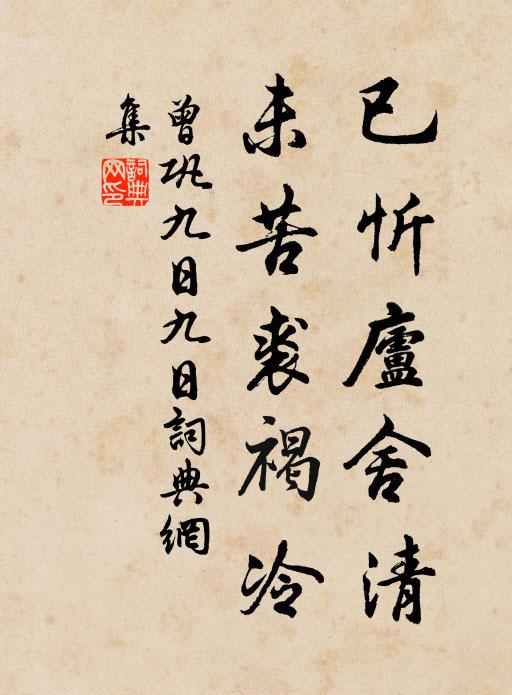 已忻廬舍清
未苦裘褐冷
曾巩九日九日詞典網
集
詞典
网印